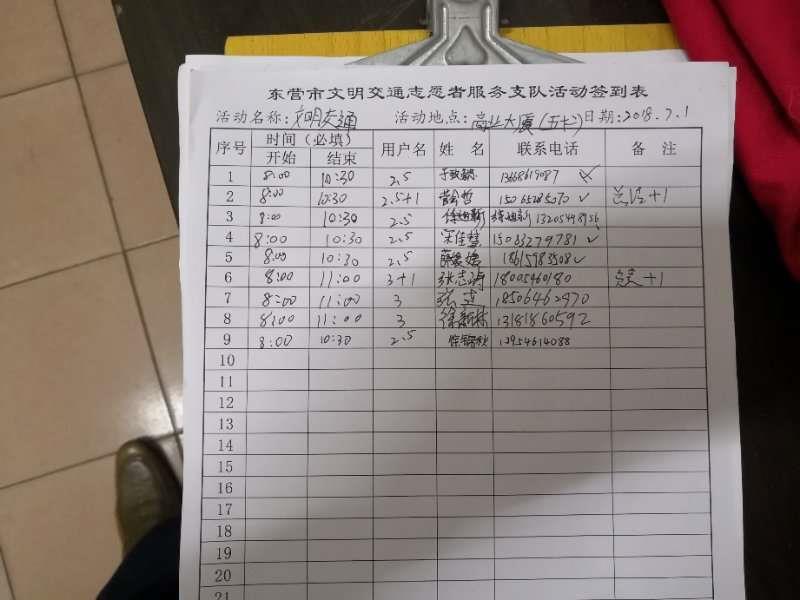 东营市文明交通志愿者服务支队活动签到表
活动名称:文明交通 活动地点:商业大厦(五十) 日期:2018.7.1
序号 时间(必填) 用户名 姓 名 联系电话 备 注
开始 结束
1 8:00 10:30 2.5 于 13668619087
2 8:00 10:30 2.5+1 15065285070 ✓ +1
3 8:00 10:30 2.5 徐迎新 徐迎新 1320548956
4 8:00 10:30 2.5 宋佳慧 15083279781 ✓
5 8:00 10:30 2.5 薛 18615983508 ✓
6 8:00 11:00 3+1 张志涛 18005460180 +1
7 8:00 11:00 3 张 18506462970
8 8:00 11:00 3 徐新林 13181860592
9 8:00 10:30 2.5 徐 13954614088
10
11
12
13
14
15
16
17
18
19
20
21